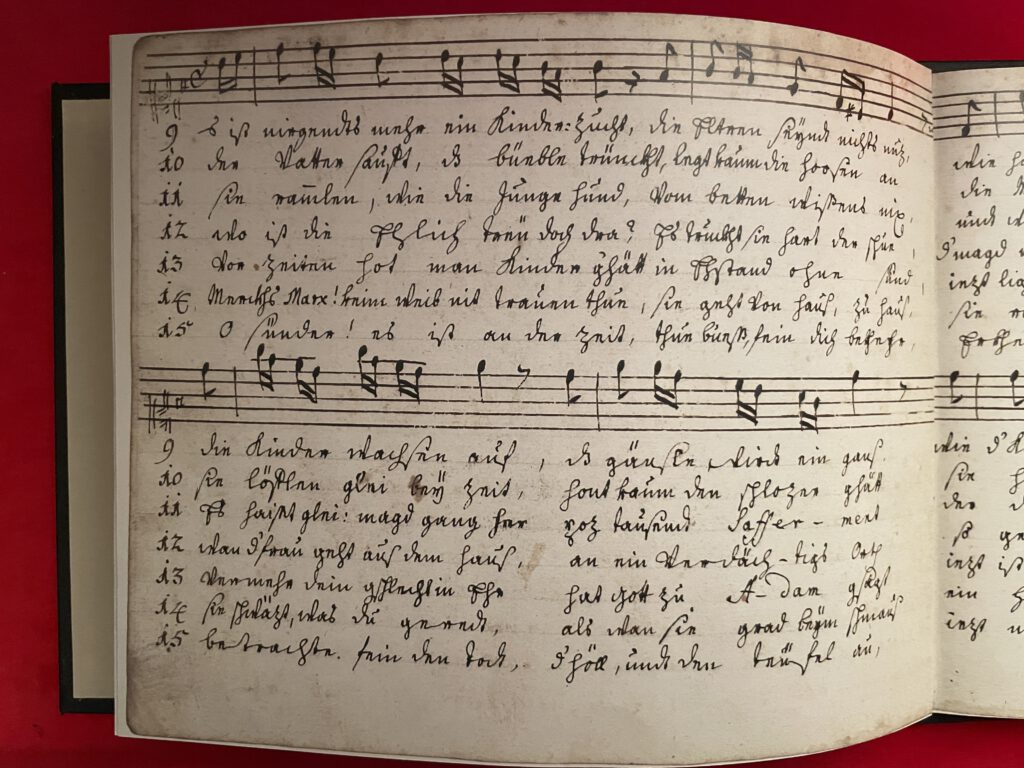 9 Es ist nirgendts mehr ein Kinder=zucht, die Eltren seyndt nichts nutz,
10 der Vatter saufft, ds büeble trünckht, legt kaum die hoosen an
11 sie ramlen, wie die Junge hund, vom betten wißens nix,
12 wo ist die Ehlich treü doch dra? Es trückht sie hart der schue,
13 Vor zeiten hot man Kinder ghätt in Ehstand ohne sünd,
14 Merckhs Marx! keim weib nit trauen thue, sie geht von hauß, zu hauß.
15 O sünder! es ist an der zeit, thue bueß, fein dich bekhehr,
9 die Kinder wachsen auf, ds gänßle wird ein ganß.
10 sie löfflen glei bey zeit, hont kaum den schlozer ghätt
11 Es haißt glei: magd gang her poz tausend Saffer-ment
12 wan d'frau geht auß dem hauß, an ein Verdäch-tigs Orth
13 Vermehr dein gschlecht in Ehr hat Gott zu A-dam gsagt
14 sie schwäzt, was du geredt, als wan sie grad beym schmauß
15 betrachte fein den Todt, d'höll, undt den teüfel au,
wie
die
undt
d'magd
iezt
sie
wie d'K
sie
der
so
iezt ist
ein
iezt